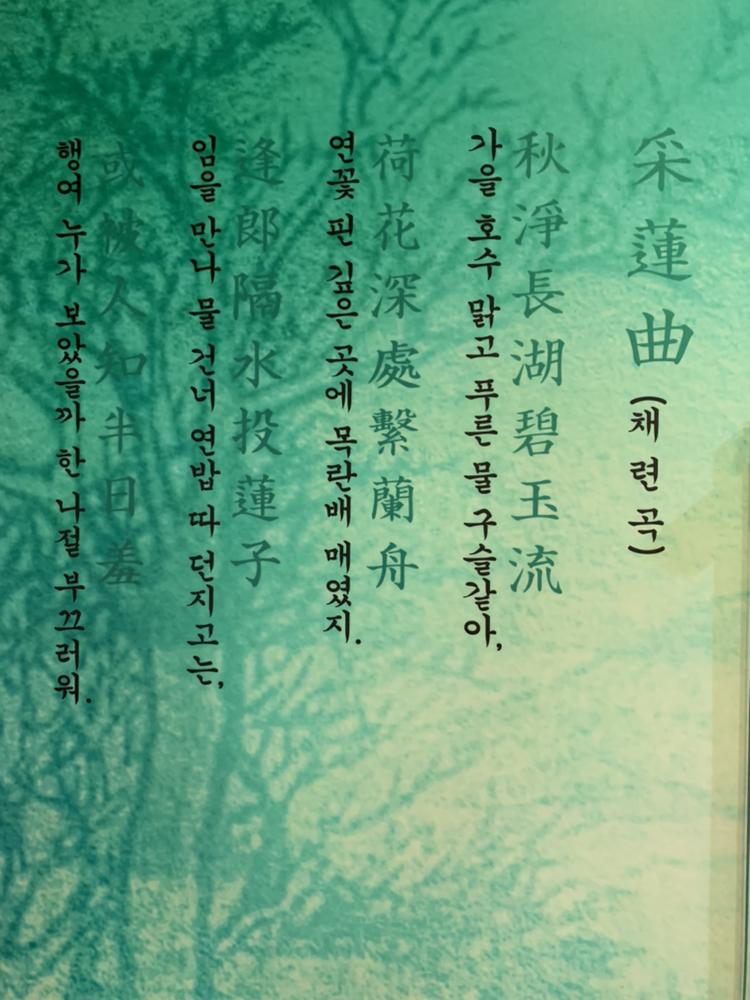 采蓮曲 (채련곡)
秋淨長湖碧玉流
가을 호수 맑고 푸른 물 구슬같아,
荷花深處繫蘭舟
연꽃 핀 깊은 곳에 목란배 매였지.
逢郞隔水投蓮子
임을 만나 물 건너 연밥 따 던지고는,
或被人知半日羞
행여 누가 보았을까 한 나절 부끄러워.